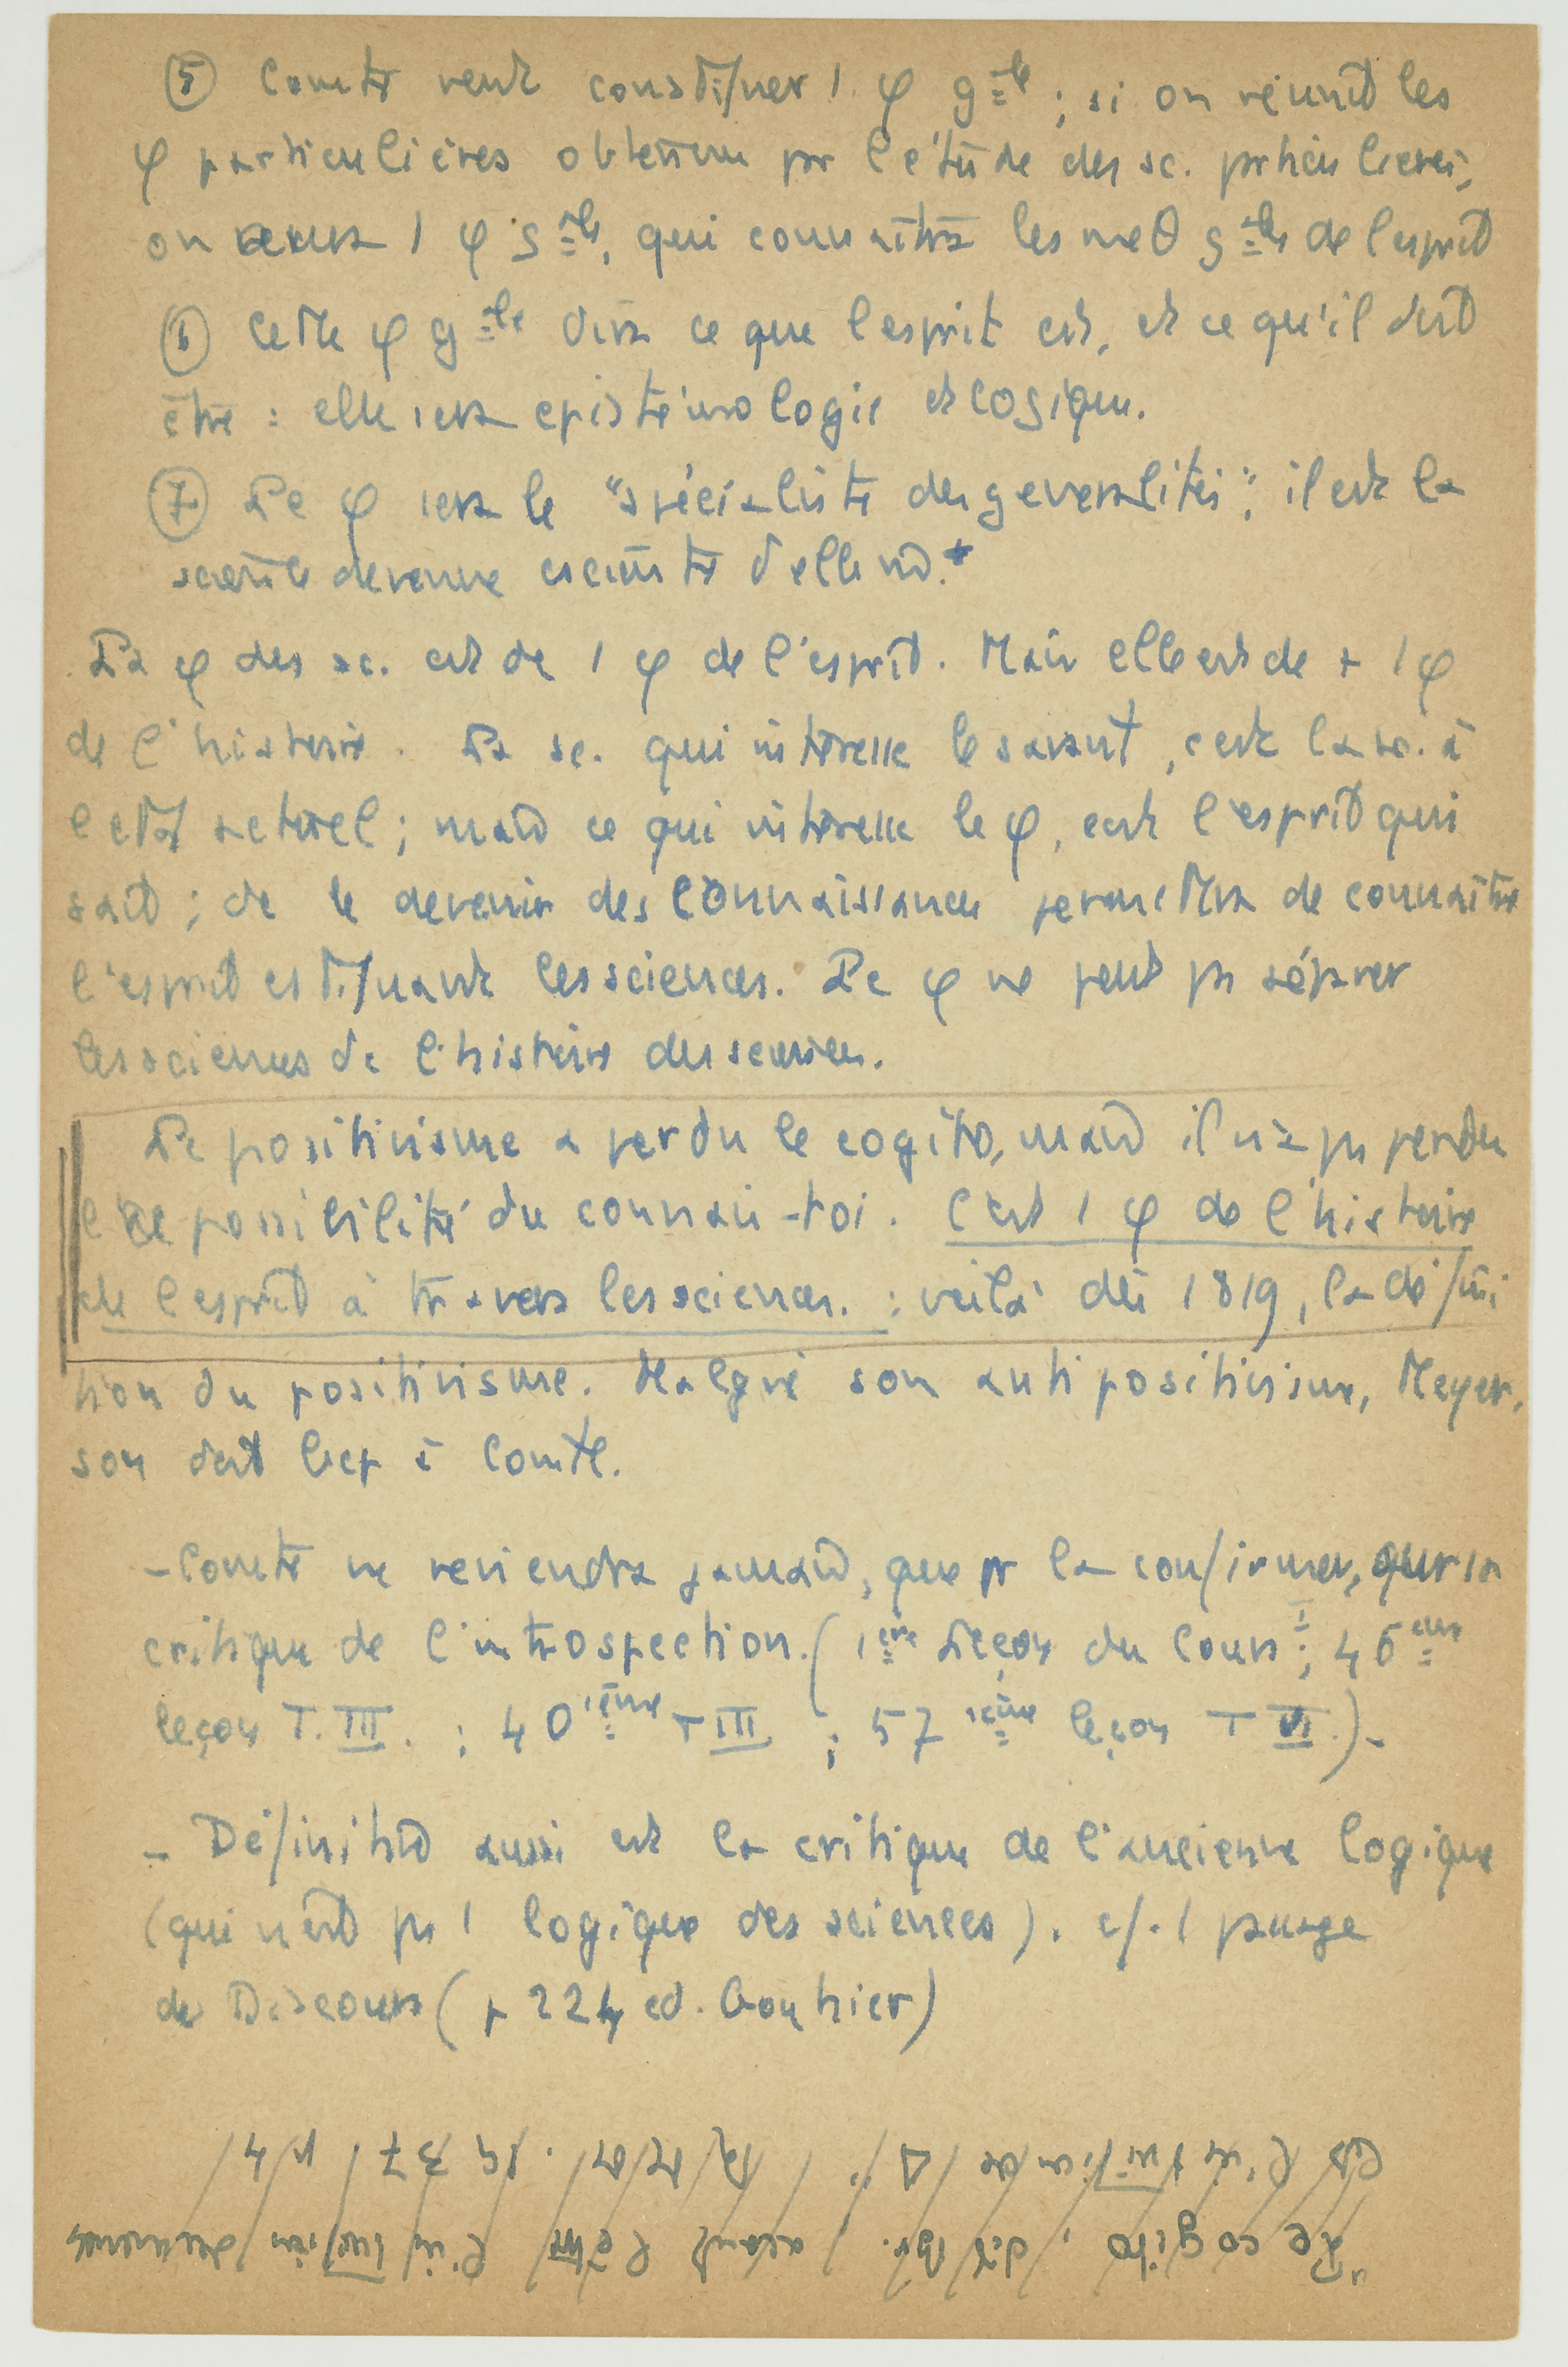 ⑤ Comte veut constituer 1 φ gale ; si on réunit les
φ particulières obtenues pr l'étude des sc. particulières,
on aura 1 φ gale, qui connaîtra les meθ gales de l'esprit
⑥ Cette φ gale dira ce que l'esprit est, et ce qu'il doit
être : elle sera epistémologie et logique.
⑦ Le φ sera le "spécialiste des generalités" ; il est la
science devenue csciente d'elle m̂.
La φ des sc. est dc 1 φ de l'esprit. Mais elle est de + 1 φ
de l'histoire. La sc. qui intéresse le savant, c'est la sc. à
l'état actuel ; mais ce qui intéresse le φ, c'est l'esprit qui
sait ; dc le devenir des connaissances permettra de connaître
l'esprit cstituant les sciences. Le φ ne peut ps séparer
les sciences de l'histoire des sciences.
Le positivisme a perdu le cogito, mais il n'a ps perdu
la possibilité du connais-toi. C'est 1 φ de l'histoire
de l'esprit à travers les sciences. : voilà dès 1819, la défini
tion du positivisme. Malgré son antipositivisme, Meyer-
son doit bcp à Comte.
- Comte ne reviendra jamais, que pr la confirmer, sur sa
critique de l'introspection. (1ère Leçon du Cours I ; 45ème
leçon T. III. ; 40ième T III ; 57ième leçon T VI.) -
- Définitive aussi est la critique de l'ancienne logique
(qui n'est ps 1 logique des sciences). cf. 1 passage
de Discours (p 224 ed. Gouhier)
"Le cogito, dit avant d'être